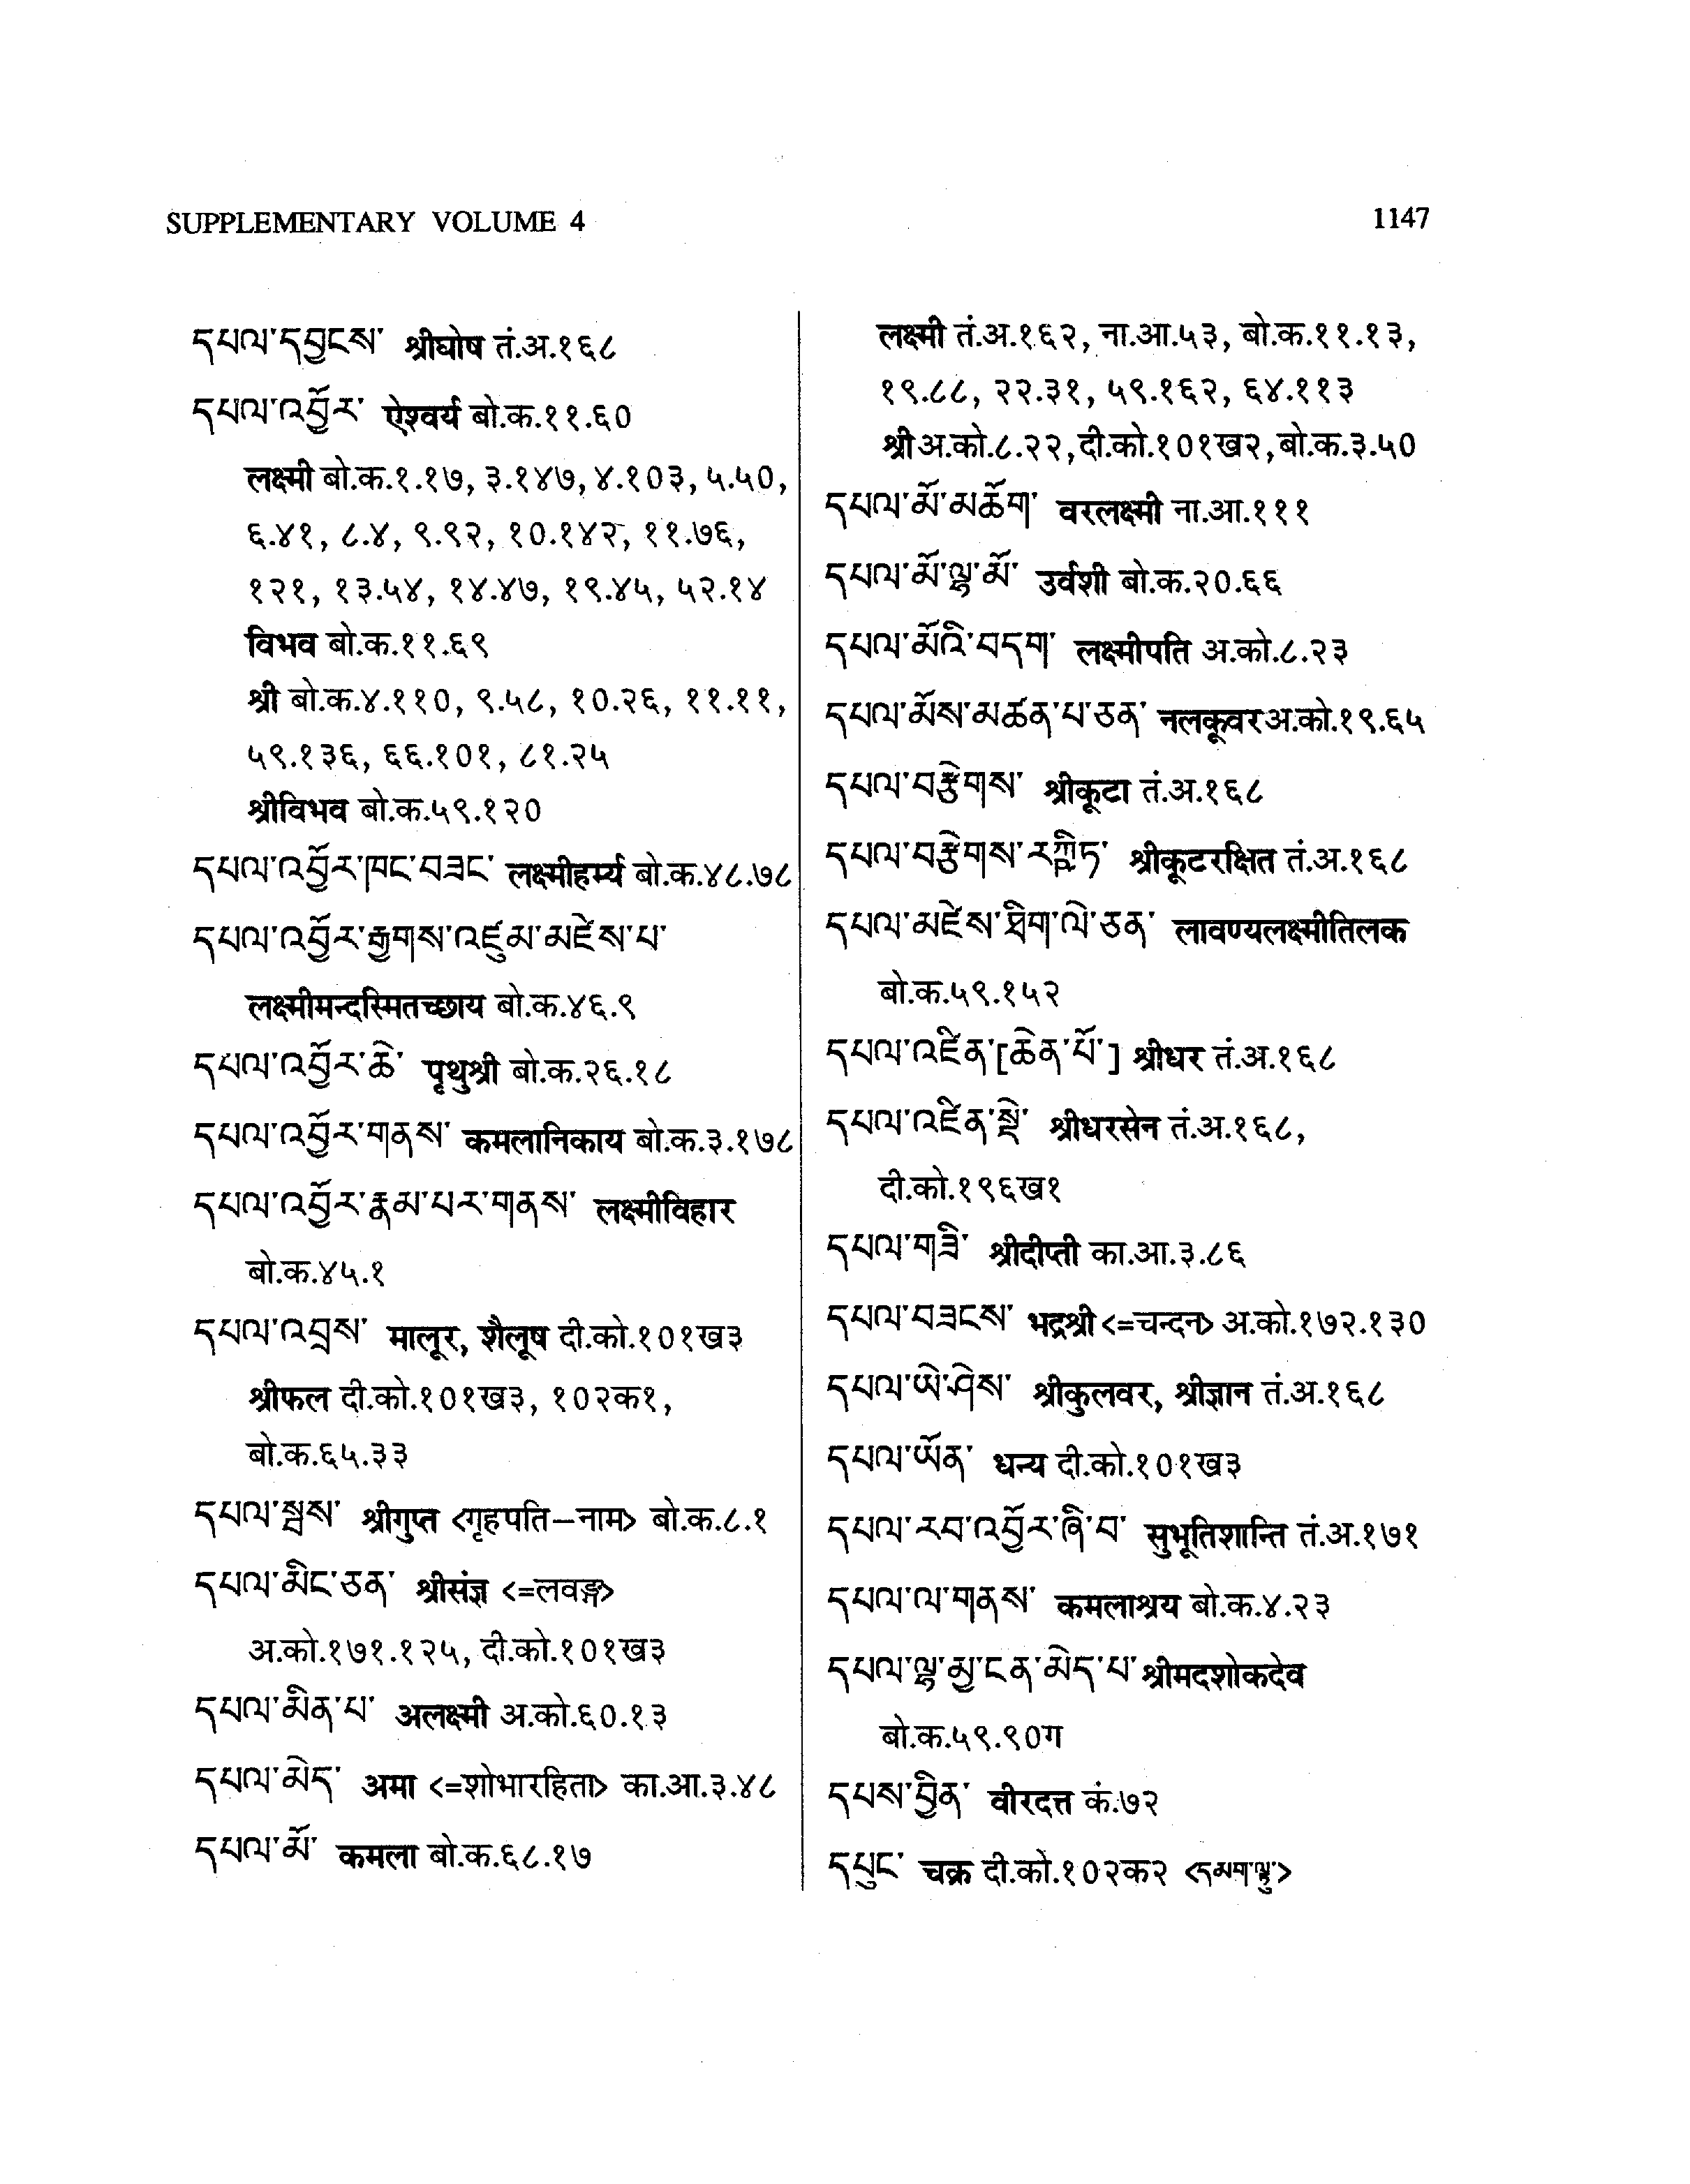 SUPPLEMENTARY VOLUME 4
1147
དཔལ་དབྱངས་ श्रीघोष तं.अ.१६८
དཔལ་འབྱོར་ ऐश्वर्य बो.क.११.६०
लक्ष्मी बो.क.१.१७, ३.१४७, ४.१०३, ५.५०,
६.४१, ८.४, ९.९२, १०.१४२, ११.७६,
१२१, १३.५४, १४.४७, १९.४५, ५२.१४
विभव बो.क.११.६९
श्री बो.क.४.११०, ९.५८, १०.२६, ११.११,
५९.१३६, ६६.१०१, ८१.२५
श्रीविभव बो.क.५९.१२०
དཔལ་འབྱོར་ཁང་བཟང་ लक्ष्मीहर्म्य बो.क.४८.७८
དཔལ་འབྱོར་རྒྱགས་འཛུམ་མཛེས་པ་
लक्ष्मीमन्दस्मितच्छाय बो.क.४६.९
དཔལ་འབྱོར་ཆེ་ पृथुश्री बो.क.२६.१८
དཔལ་འབྱོར་གནས་ कमलानिकाय बो.क.३.१७८
དཔལ་འབྱོར་རྣམ་པར་གནས་ लक्ष्मीविहार
बो.क.४५.१
དཔལ་འབྲས་ मालूर, शैलूष दी.को.१०१ख३
श्रीफल दी.को.१०१ख३, १०२क१,
बो.क.६५.३३
དཔལ་སྦས་ श्रीगुप्त <गृहपति–नाम> बो.क.८.१
དཔལ་མིང་ཅན་ श्रीसंज्ञ <=लवङ्ग>
अ.को.१७१.१२५, दी.को.१०१ख३
དཔལ་མིན་པ་ अलक्ष्मी अ.को.६०.१३
དཔལ་མེད་ अमा <=शोभारहिता> का.आ.३.४८
དཔལ་མོ་ कमला बो.क.६८.१७
लक्ष्मी तं.अ.१६२, ना.आ.५३, बो.क.११.१३,
१९.८८, २२.३१, ५९.१६२, ६४.११३
श्री अ.को.८.२२, दी.को.१०१ख२, बो.क.३.५०
དཔལ་མོ་མཆོག་ वरलक्ष्मी ना.आ.१११
དཔལ་མོ་ལྷ་མོ་ उर्वशी बो.क.२०.६६
དཔལ་མོའི་བདག་ लक्ष्मीपति अ.को.८.२३
དཔལ་མོས་མཚན་པ་ཅན་ नलकूवर अ.को.१९.६५
དཔལ་བརྩེགས་ श्रीकूटा तं.अ.१६८
དཔལ་བརྩེགས་རཀྵིཏ་ श्रीकूटरक्षित तं.अ.१६८
དཔལ་མཛེས་ཐིག་ལེ་ཅན་ लावण्यलक्ष्मीतिलक
बो.क.५९.१५२
དཔལ་འཛིན་[ཆེན་པོ་] श्रीधर तं.अ.१६८
དཔལ་འཛིན་སྡེ་ श्रीधरसेन तं.अ.१६८,
दी.को.१९६ख१
དཔལ་གཟི་ श्रीदीप्ती का.आ.३.८६
དཔལ་བཟངས་ भद्रश्री <=चन्दन> अ.को.१७२.१३०
དཔལ་ཡེ་ཤེས་ श्रीकुलवर, श्रीज्ञान तं.अ.१६८
དཔལ་ཡོན་ धन्य दी.को.१०१ख३
དཔལ་རབ་འབྱོར་ཞི་བ་ सुभूतिशान्ति तं.अ.१७१
དཔལ་ལ་གནས་ कमलाश्रय बो.क.४.२३
དཔལ་ལྷ་མྱ་ངན་མེད་པ་ श्रीमदशोकदेव
बो.क.५९.९०ग
དཔས་བྱིན་ वीरदत्त कं.७२
དཔུང་ चक्र दी.को.१०२क२ <དམག་ལྟུ་>